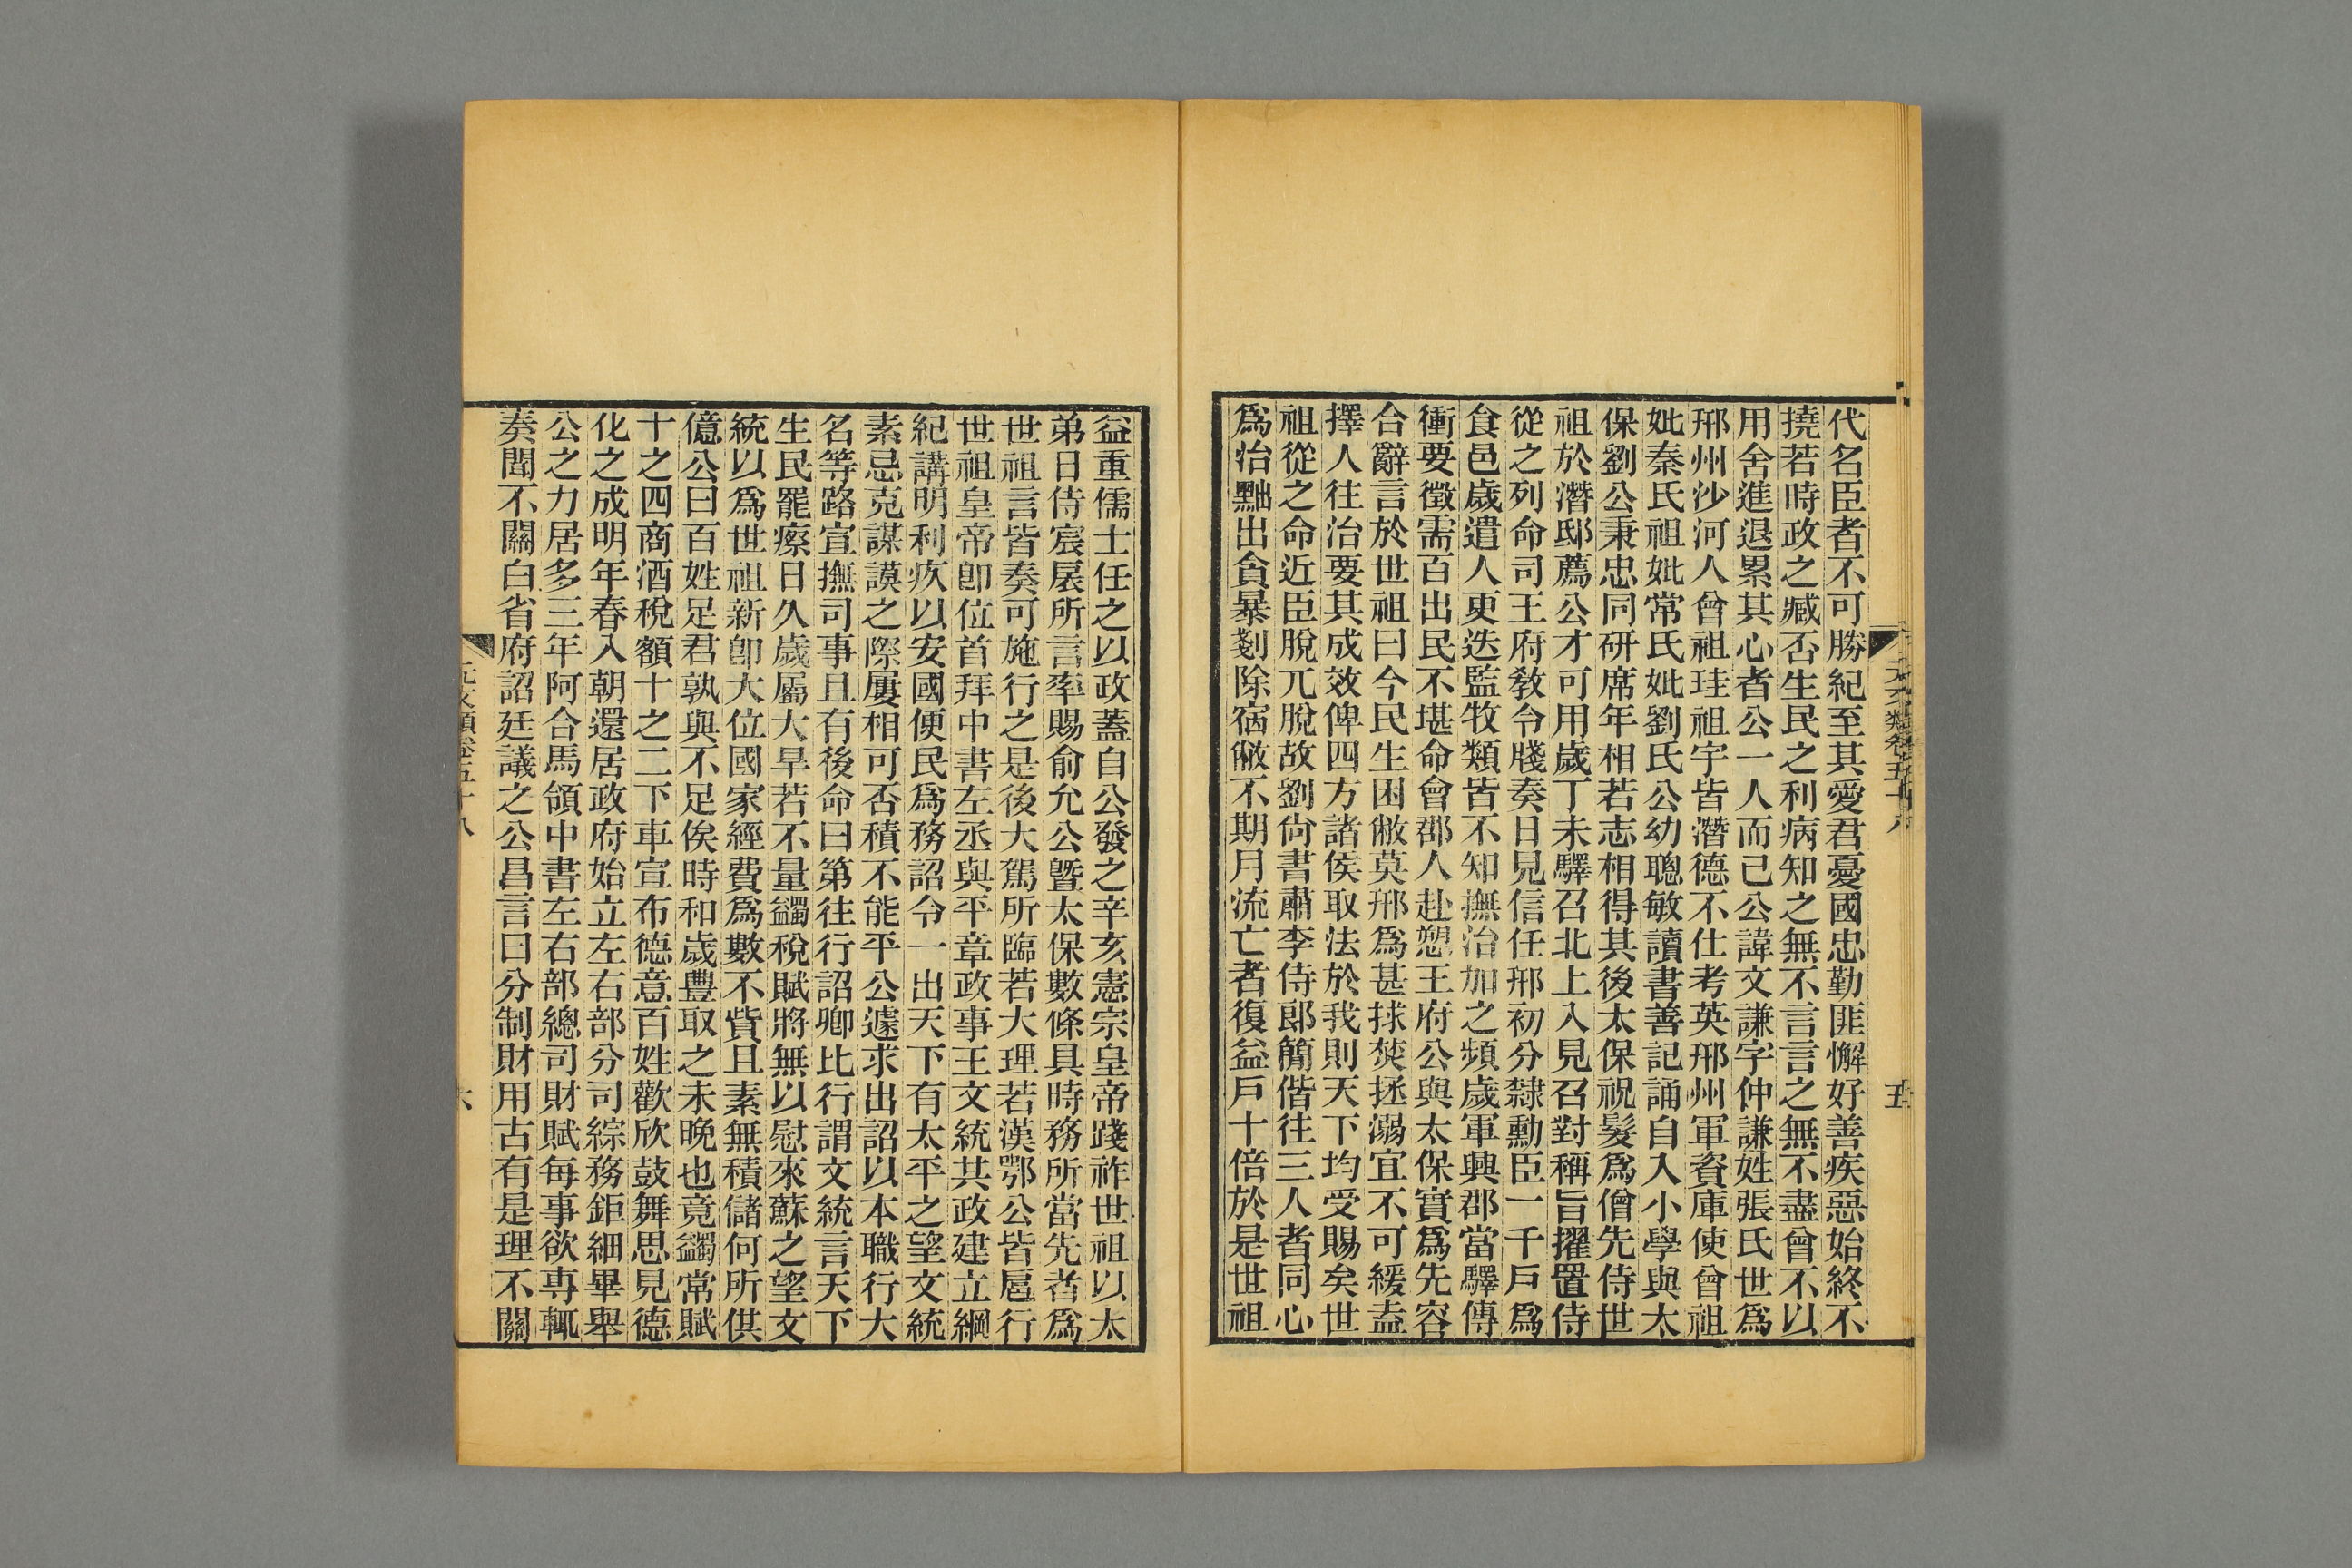 代名臣者不可勝紀至其愛君憂國忠勤匪懈好善疾惡始終不
撓若時政之臧否生民之利病知之無不言言之無不盡曾不以
用舍進退累其心者公一人而已公諱文謙字仲謙姓張氏世爲
邢州沙河人曾祖珪祖宇皆潛德不仕考英邢州軍資庫使曾祖
妣秦氏祖妣常氏妣劉氏公幼聰敏讀書善記誦自入小學與太
保劉公秉忠同研席年相若志相得其後太保祝髮爲僧先侍世
祖於潛邸薦公才可用歲丁未驛召北上入見召對稱旨擢置侍
從之列命司王府敎令牋奏日見信任邢初分隸勳臣一千戶爲
食邑歲遣人更迭監牧類皆不知撫治加之頻歲軍興郡當驛傳
衝要徵需百出民不堪命會郡人赴愬王府公與太保實爲先容
合辭言於世祖曰今民生困敝莫邢爲甚捄焚拯溺宜不可緩盍
擇人往治要其成效俾四方諸侯取法於我則天下均受賜矣世
祖從之命近臣脫兀脫故劉尙書肅李侍郎簡偕往三人者同心
爲治黜出貪暴剗除宿敝不期月流亡者復益戶十倍於是世祖
益重儒士任之以政蓋自公發之辛亥憲宗皇帝踐祚世祖以太
弟日侍宸扆所言率賜俞允公曁太保數條具時務所當先者爲
世祖言皆奏可施行之是後大駕所臨若大理若漢鄂公皆扈行
世祖皇帝卽位首拜中書左丞與平章政事王文統共政建立綱
紀講明利疚以安國便民爲務詔令一出天下有太平之望文統
素忌克謀謨之際屢相可否積不能平公遽求出詔以本職行大
名等路宣撫司事且有後命曰第往行詔卿比行謂文統言天下
生民罷瘵日久歲屬大旱若不量蠲稅賦將無以慰來蘇之望文
統以爲世祖新卽大位國家經費爲數不貲且素無積儲何所供
億公曰百姓足君孰與不足俟時和歲豐取之未晚也竟蠲常賦
十之四商酒稅額十之二下車宣布德意百姓歡欣鼓舞思見德
化之成明年春入朝還居政府始立左右部分司綜務鉅細畢舉
公之力居多三年阿合馬領中書左右部總司財賦每事欲專輒
奏聞不關白省府詔廷議之公昌言曰分制財用古有是理不關
元文類卷五十八
六